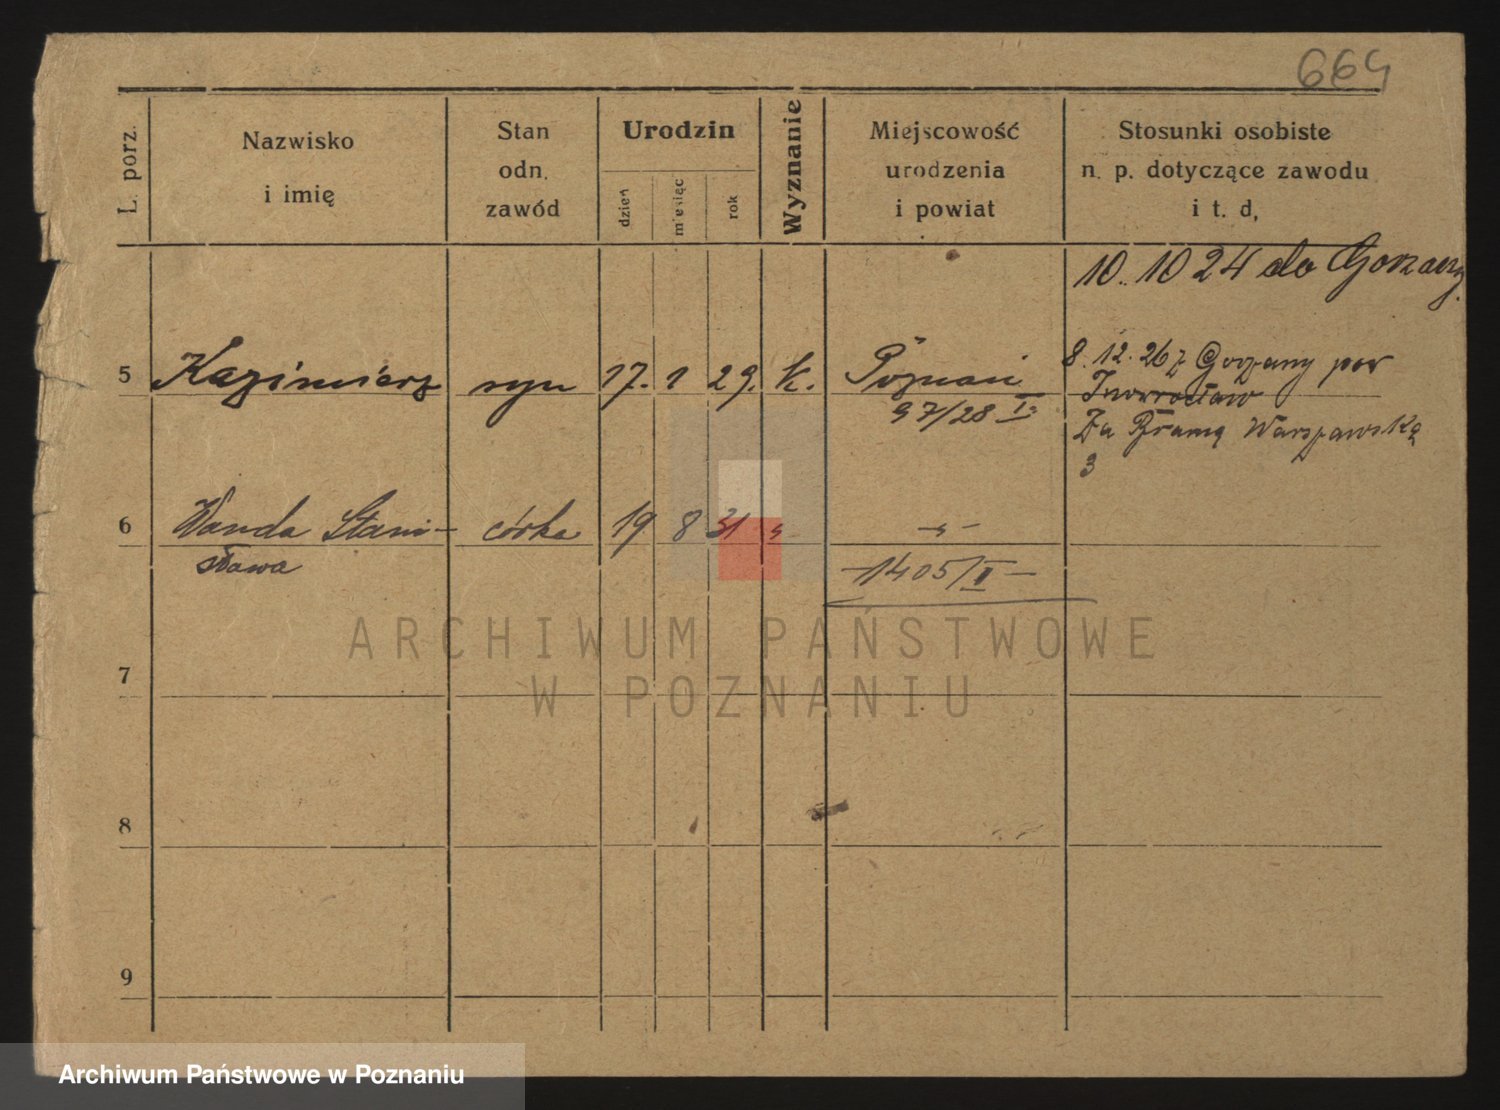 664
L. porz.
Nazwisko
i imię
Stan
odn.
zawód
Urodzin
dzień
miesiąc
rok
Wyznanie
Miejscowość
urodzenia
i powiat
Stosunki osobiste
n. p. dotyczące zawodu
i t. d,
10. 10 24 do
5 Kazimierz syn 17. 1 29. k. Poznań
97/28 I
8. 12. 26 z Gorzany pow
Inowrocław
Za Bramą Warszawską
3
6 Wanda Stani- córka 19 8 31 " -"-
sława
-1405/II-
7
8
9
ARCHIWUM PAŃSTWOWE
W POZNANIU
Archiwum Państwowe w Poznaniu